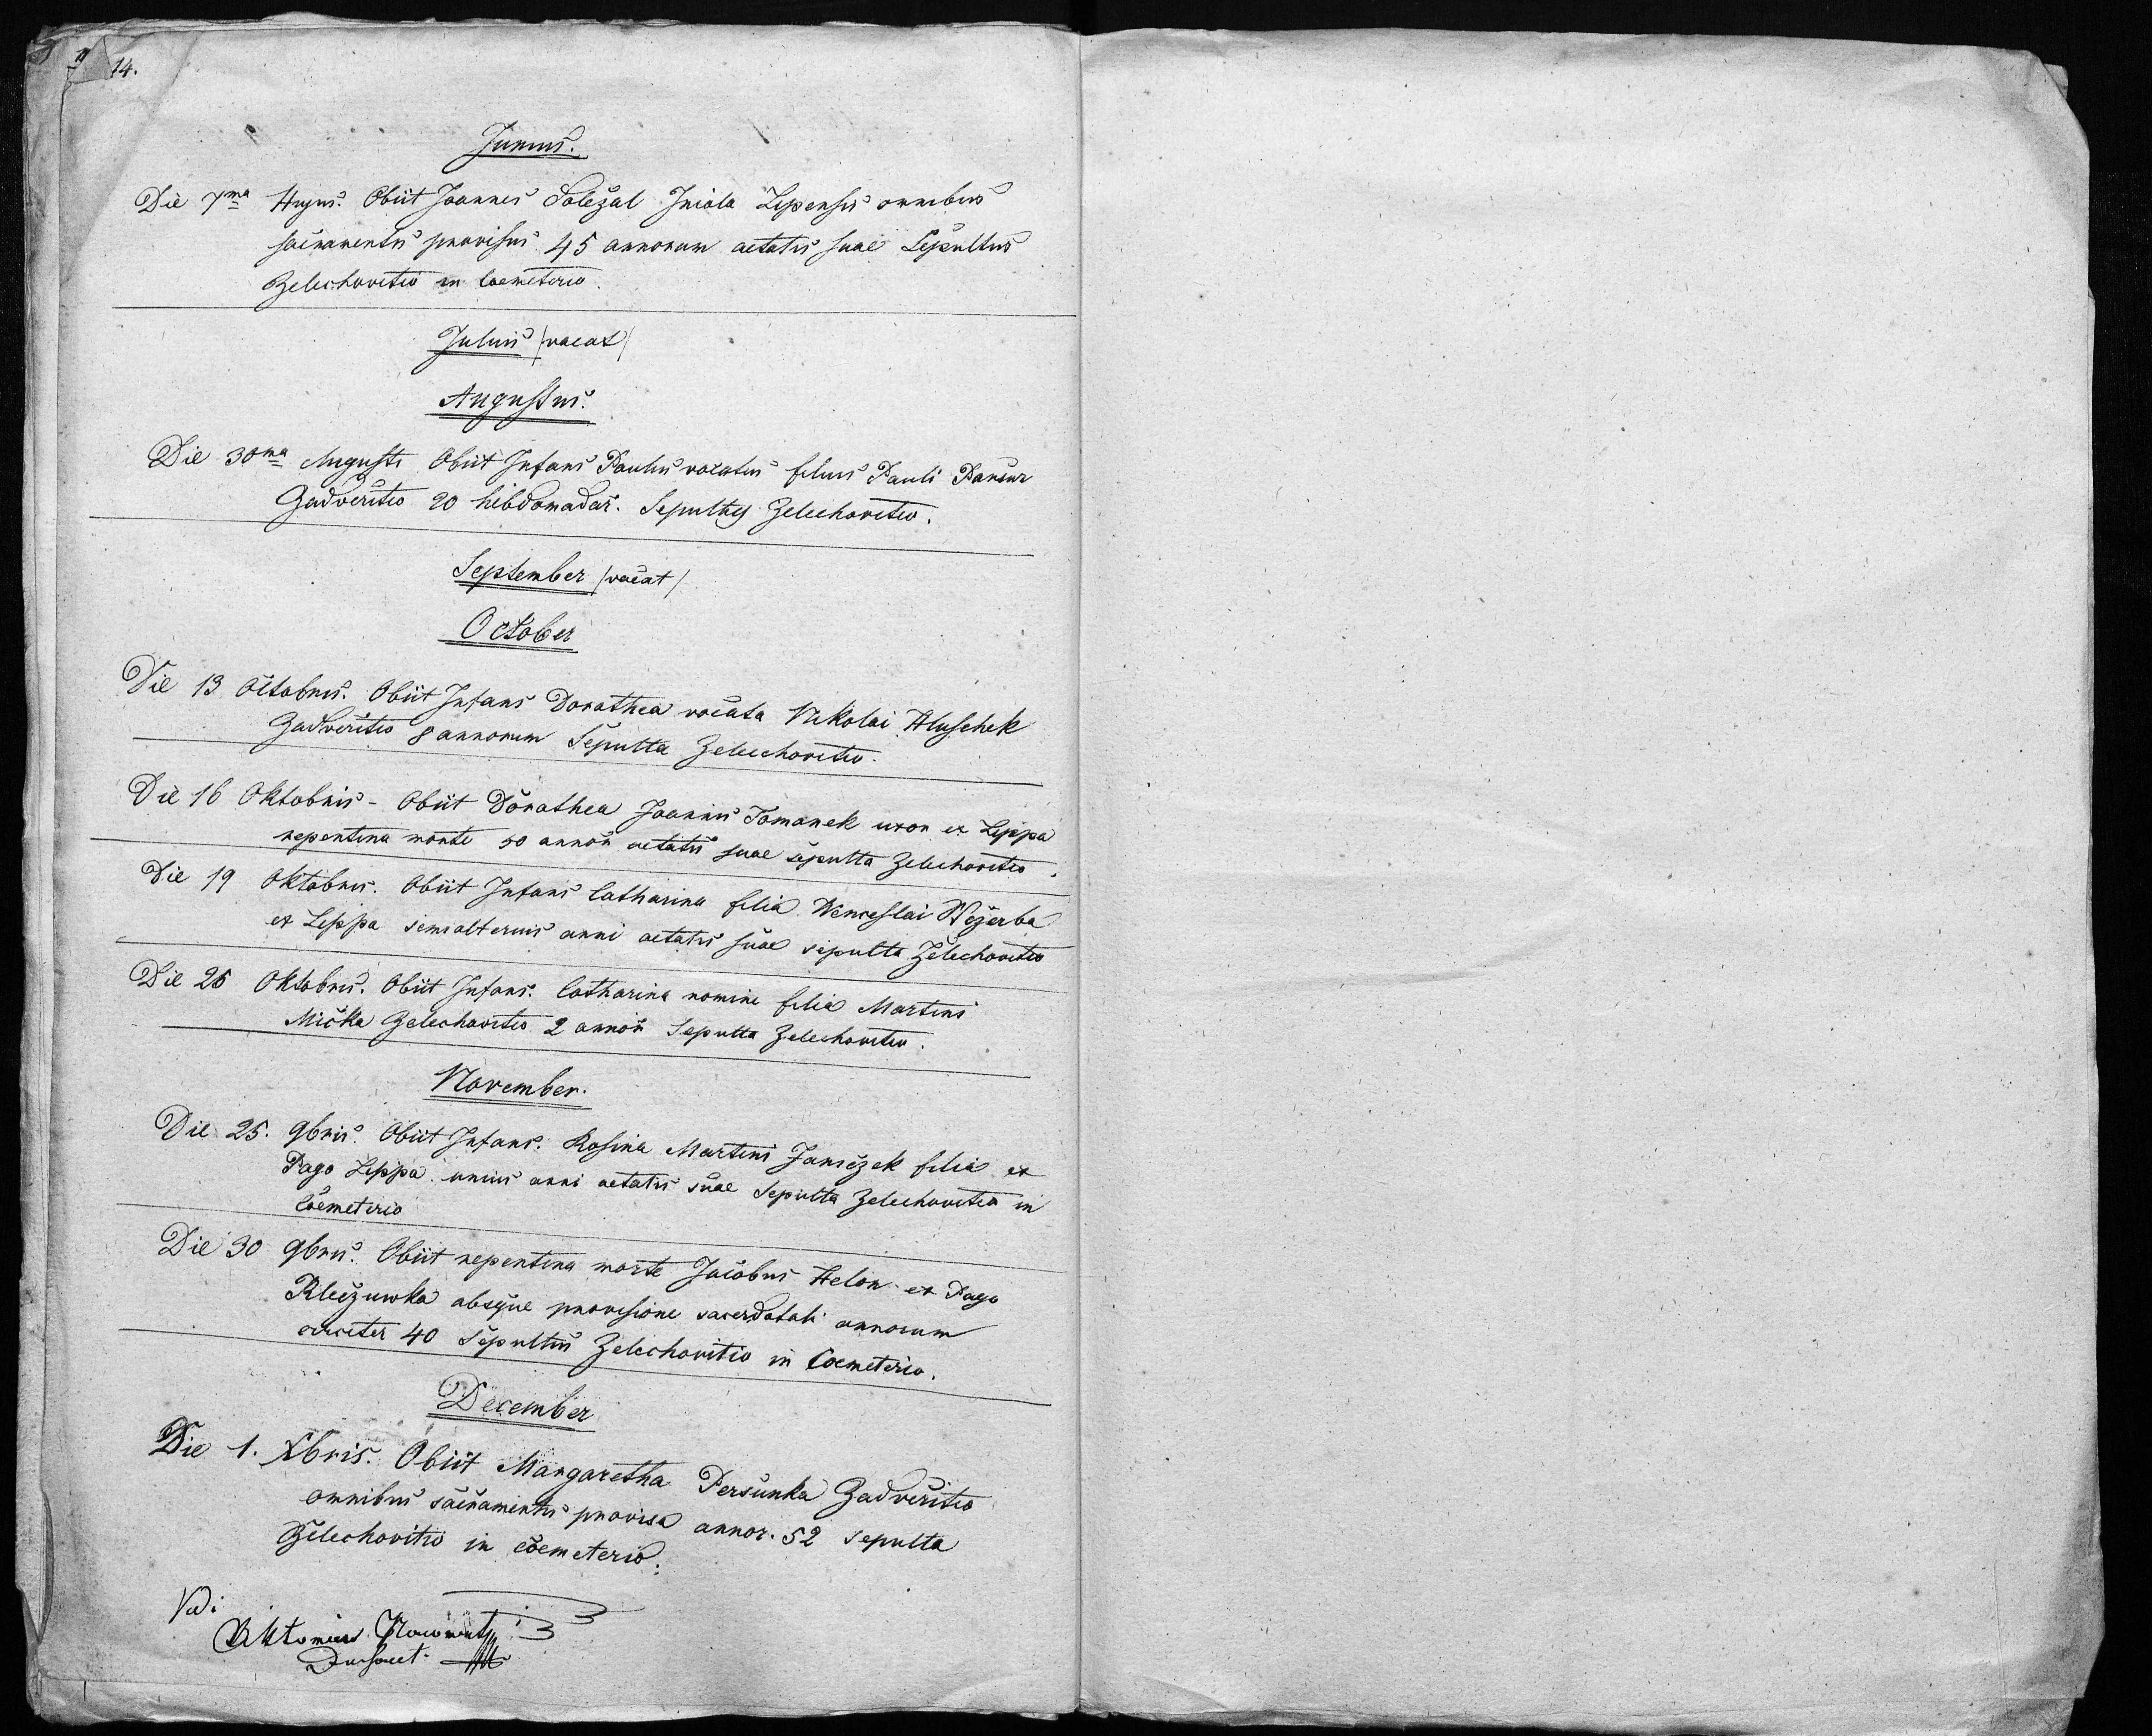 14.
Junius.
Die 7ma Hujus. Obiit Joannes Soležal Incola Lipensis omnibus
sacramentis provisus 45 annorum aetatis suae Sepultus
Zelechovitio in Coemeterio.
Julius /vacat/
Augustus.
Die 30ma Augusti Obiit Infans Paulus vocatus filius Pauli
Zadveritio 20 hebdomadar. Sepultus Zelechovitio.
September /vacat/
October
Die 13 Octobris. Obiit Infans Dorothea vocata Nikolai Hluschek
Zadveritio 8 annorum Sepulta Zelechovitio.
Die 16 Oktobris - Obiit Dorothea Joannis Tomanek uxor ex Lippa
repentina morte 50 annor aetatis suae sepulta Zelechovitio.
Die 19 Oktobris. Obiit Infans Catharina filia Wenceslai Wežerba
ex Lippa semialterius anni aetatis suae sepulta Zelechovitio
Die 26 Oktobris. Obiit Infans. Catharina nomine filia Martini
Mička Zelechovitio 2 annor Sepulta Zelechovitio.
November.
Die 25. 9bris. Obiit Infans. Rosina Martini Janežek filia ex
Pago Lippa unius anni aetatis suae Sepulta Zelechovitio in
Coemeterio
Die 30 9bris. Obiit repentina morte Jacobus Helon ex Pago
Kleczuwka absque provisione sacerdotali annorum
circiter 40 Sepultus Zelechovitio in Coemeterio.
December
Die 1. Xbris. Obiit Margaretha Persunka Zadveritio
omnibus sacramentis provisa annor. 52 sepulta
Zelechovitio in coemeterio.
Vidi